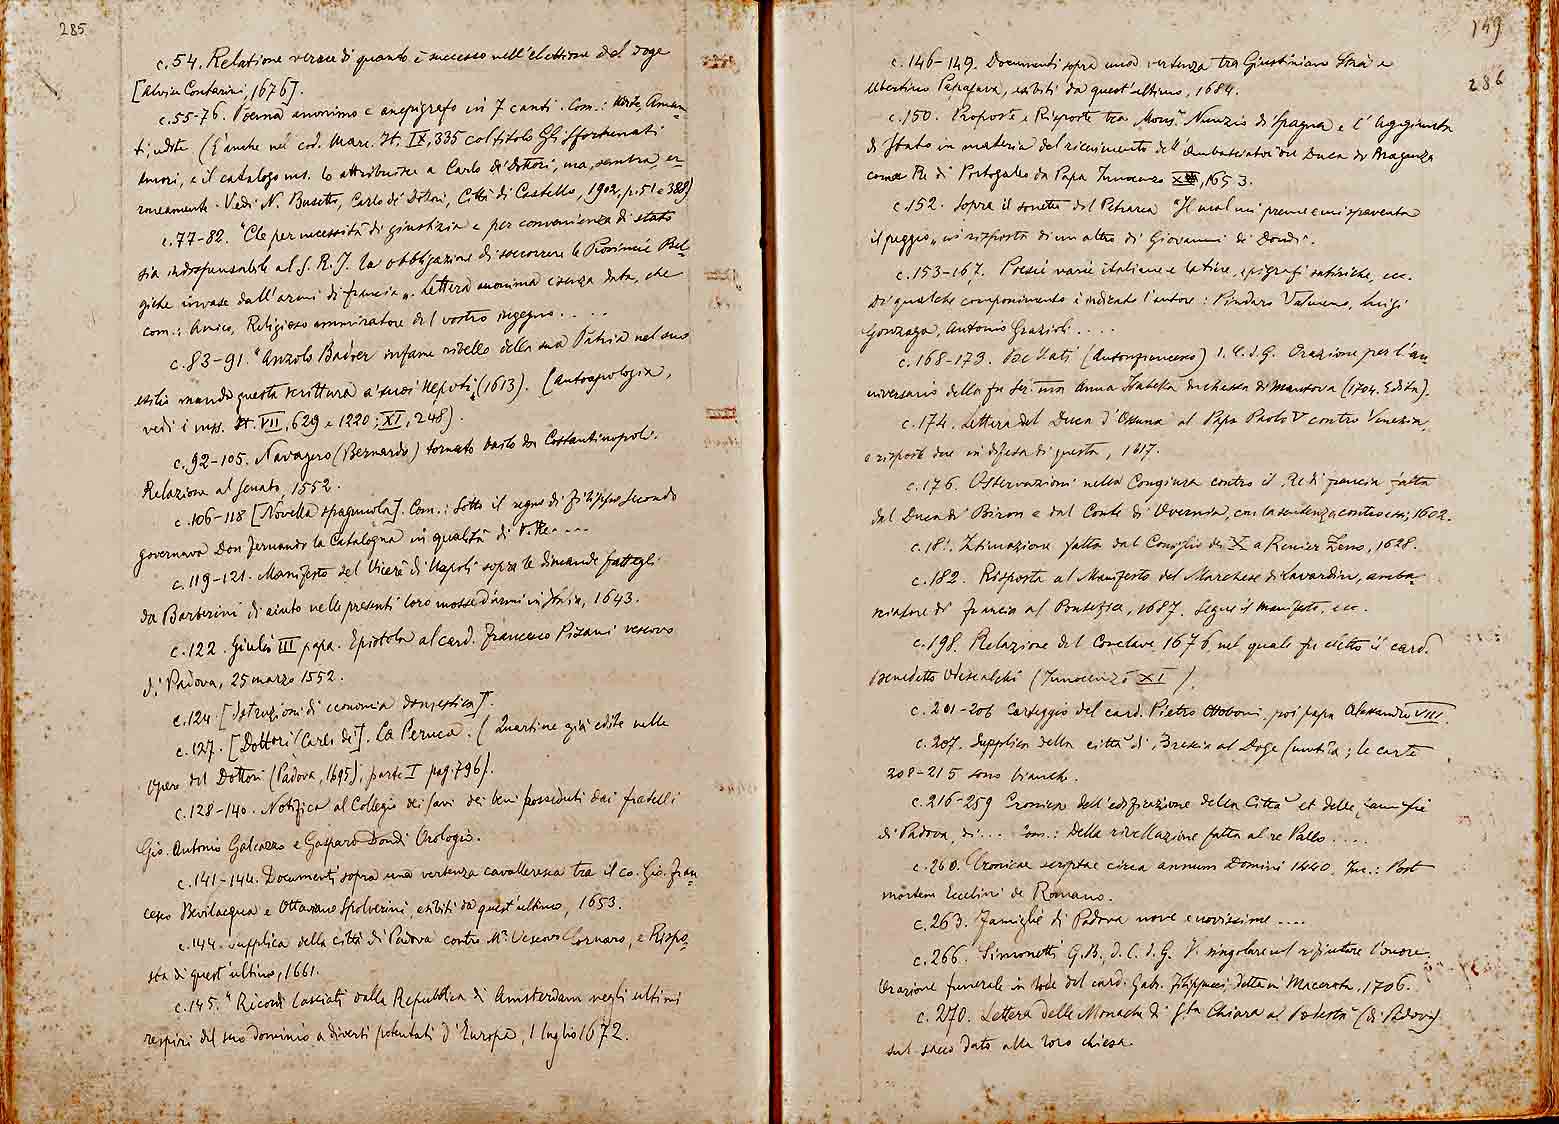 285
c.54. Relatione verace di quanto è successo nell'elettione del doge
[Alvise Contarini, 1676].
c.55-76. Poema anonimo e anepigrafo in 7 canti. Com.: Udite, Aman-
ti, udite (È anche nel cod. Marc. It. IX, 335 col titolo Gli sfortunati
amori, e il catalogo ms. lo attribuisce a Carlo de' Dottori, ma, sembra, er-
roneamente. Vedi N. Busetto, Carlo de' Dottori, Città di Castello, 1902, p. 51 e 388)
c.77-82. "Che per necessità di giustizia e per convenienza di stato
sia indispensabile al S. R. I. la obbligazione di soccorrere le Provincie Bel-
giche invase dall'armi di Francia". Lettera anonima e senza data, che
com.: Amico, Religioso ammiratore del vostro ingegno. . . . .
c.83-91. "Anzolo Badoer infame ribello della sua Patria nel suo
esilio manda questa scrittura a' suoi Nepoti" (1613). (Autoapologia,
vedi i mss. It. VII, 629 e 1220; XI, 248).
c.92-105. Navagero (Bernardo) tornato bailo da Costantinopoli.
Relazione al Senato, 1552.
c.106-118 [Novella spagnuola]. Com.: Sotto il regno di Filippo Secondo
governava Don Fernando la Catalogna in qualità di V. Re. . . .
c.119-121. Manifesto del Vicerè di Napoli sopra le dimande fattegli
da Barberini di aiuto nelle presenti loro mosse d'armi in Italia, 1643.
c.122. Giulio III papa. Epistola al card. Francesco Pisani vescovo
di Padova, 25 marzo 1552.
c.124. [Istruzioni di economia domestica].
c.127. [Dottori Carlo de']. La Peruca. (Quartine già edite nelle
Opere del Dottori (Padova, 1695), parte I pag. 796).
c.128-140. Notifica al Collegio dei Savi dei beni posseduti dai fratelli
Gio. Antonio Galeazzo e Gasparo Dondi Orologio.
c.141-144. Documenti sopra una vertenza cavalleresca tra il co. Gio. Fran-
cesco Bevilacqua e Ottaviano Spolverini, esibiti da quest'ultimo, 1653.
c.144. Supplica della città di Padova contro Mr. Vescovo Cornaro, e Rispo-
sta di quest'ultimo, 1661.
c.145. "Ricordi lasciati dalla Repubblica di Amsterdam negli ultimi
respiri del suo dominio a diversi potentati d'Europa, 1 luglio 1672.
149
286
c.146-149. Documenti sopra una vertenza tra Giustiniano Strà e
Ubertino Papafava, esibiti da quest'ultimo, 1684.
c.150. Proposte e Risposte tra Mons. Nunzio di Spagna e l'Aggiunta
di Stato in materia del ricevimento dell'Ambasciator del Duca di Braganza
come Re di Portogallo da Papa Innocenzo X, 1653.
c.152. Sopra il sonetto del Petrarca "Il mal mi preme e mi spaventa
il peggio" in risposta di un altro di Giovanni de Dondi.
c.153-167. Poesie varie italiane e latine, epigrafi satiriche, ecc.
Di qualche componimento è indicato l'autore: Pindaro Valmeno, Luigi
Gonzaga, Antonio Grazioli. . . .
c.168-173. (Antonfrancesco) d. C. d. G. Orazione per l'an-
niversario della fu Ser.ma Anna Isabella duchessa di Mantova (1704. Edita).
c.174. Lettera del Duca d'Ossuna al Papa Paolo V contro Venezia,
e risposte due in difesa di questa, 1617.
c.176. Osservazioni nella Congiura contro il Re di Francia fatta
dal Duca di Biron e dal Conte di Overnia, con la sentenza contro essi, 1602.
c.181. Intimazione fatta dal Consiglio dei X a Renier Zeno, 1628.
c.182. Risposta al Manifesto del Marchese di Lavardin, amba-
sciatore di Francia al Pontefice, 1687. Segue il manifesto, ecc.
c.198. Relazione del Conclave 1676 nel quale fu eletto il card.
Benedetto Odescalchi (Innocenzo XI).
c.201-206 Carteggio del card. Pietro Ottoboni, poi papa Alessandro VIII.
c.207. Supplica della città di Brescia al Doge ; le carte
208-215 sono bianche.
c.216-259 Cronica dell'edificazione della Città et delle famiglie
di Padova, di... Com.: Della rivellazione fatta al re Pallo . . . .
c.260. Cronicae scriptae circa annum Domini 1440. Inc.: Post
mortem Ecelini de Romano.
c.263. Famiglie di Padova nove e novissime ....
c.266. Simonetti G.B., d. C. d. G. V. singolare nel rifiutare l'onore.
Orazione funerale in lode del card. Gabr. Filippucci, detta in Macerata, 1706.
c.270. Lettera delle Monache di Sta Chiara al Podestà (di Padova)
sul sacco dato alla loro chiesa.